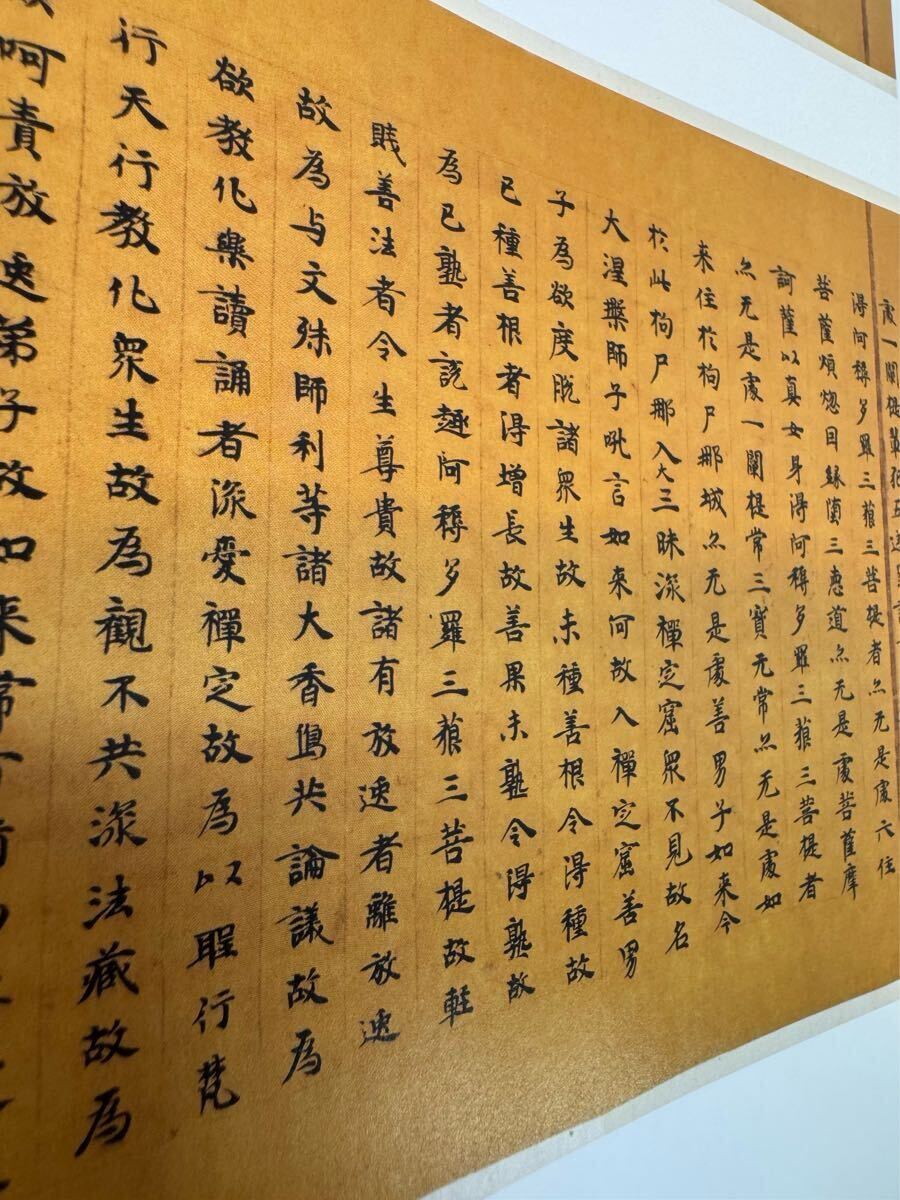 處一闡提
得阿耨多羅三藐三菩提者亦无是處六住
菩薩煩惱因緣墮三惡道亦无是處菩薩摩
訶薩以真女身得阿耨多羅三藐三菩提者
亦无是處一闡提常三寶无常亦无是處如
来住於拘尸那城亦无是處善男子如来今
於此拘尸那入大三昧深禪定窟衆不見故名
大涅槃師子吼言如来何故入禪定窟善男
子為欲度脫諸衆生故未種善根令得種故
已種善根者得增長故善果未熟令得熟故
為已熟者說趣阿耨多羅三藐三菩提故輕
賤善法者令生尊貴故諸有放逸者離放逸
故為与文殊師利等諸大香為共論議故為
欲教化樂讀誦者深愛禪定故為以聖行梵
行天行教化衆生故為觀不共深法藏故為
呵責放逸弟子故如来常